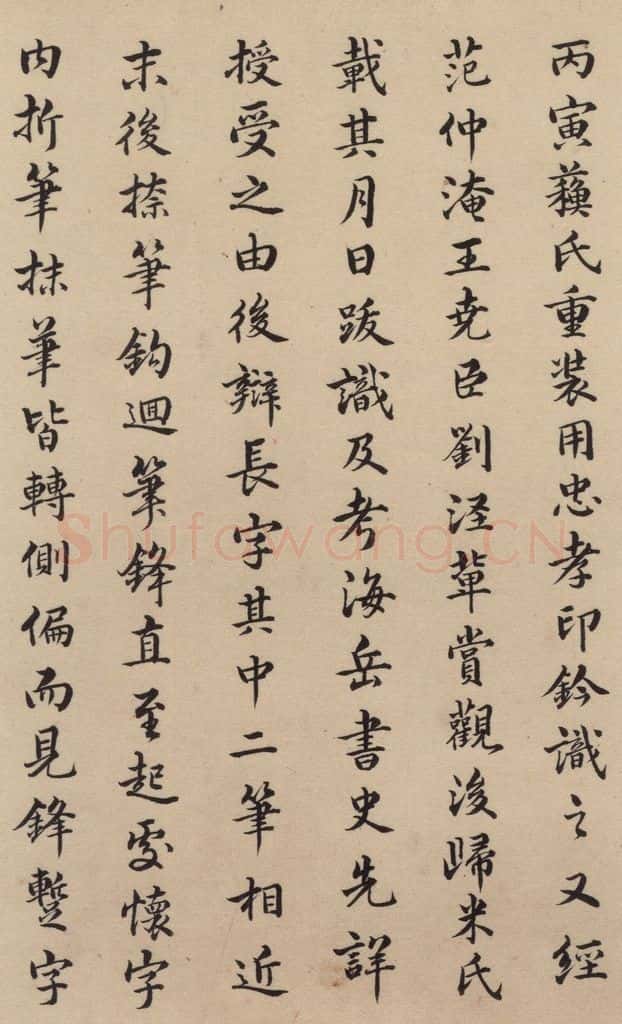 丙寅蘓氏重装用忠孝印鈐識之又經
范仲淹王尭臣劉涇軰賞觀後歸米氏
載其月日䟦識及考海岳書史先詳
授受之由後辯長字其中二筆相近
末後捺筆鈎迴筆鋒直至起處懷字
内折筆抹筆皆轉側偏而見鋒蹔字
Shufawang.CN